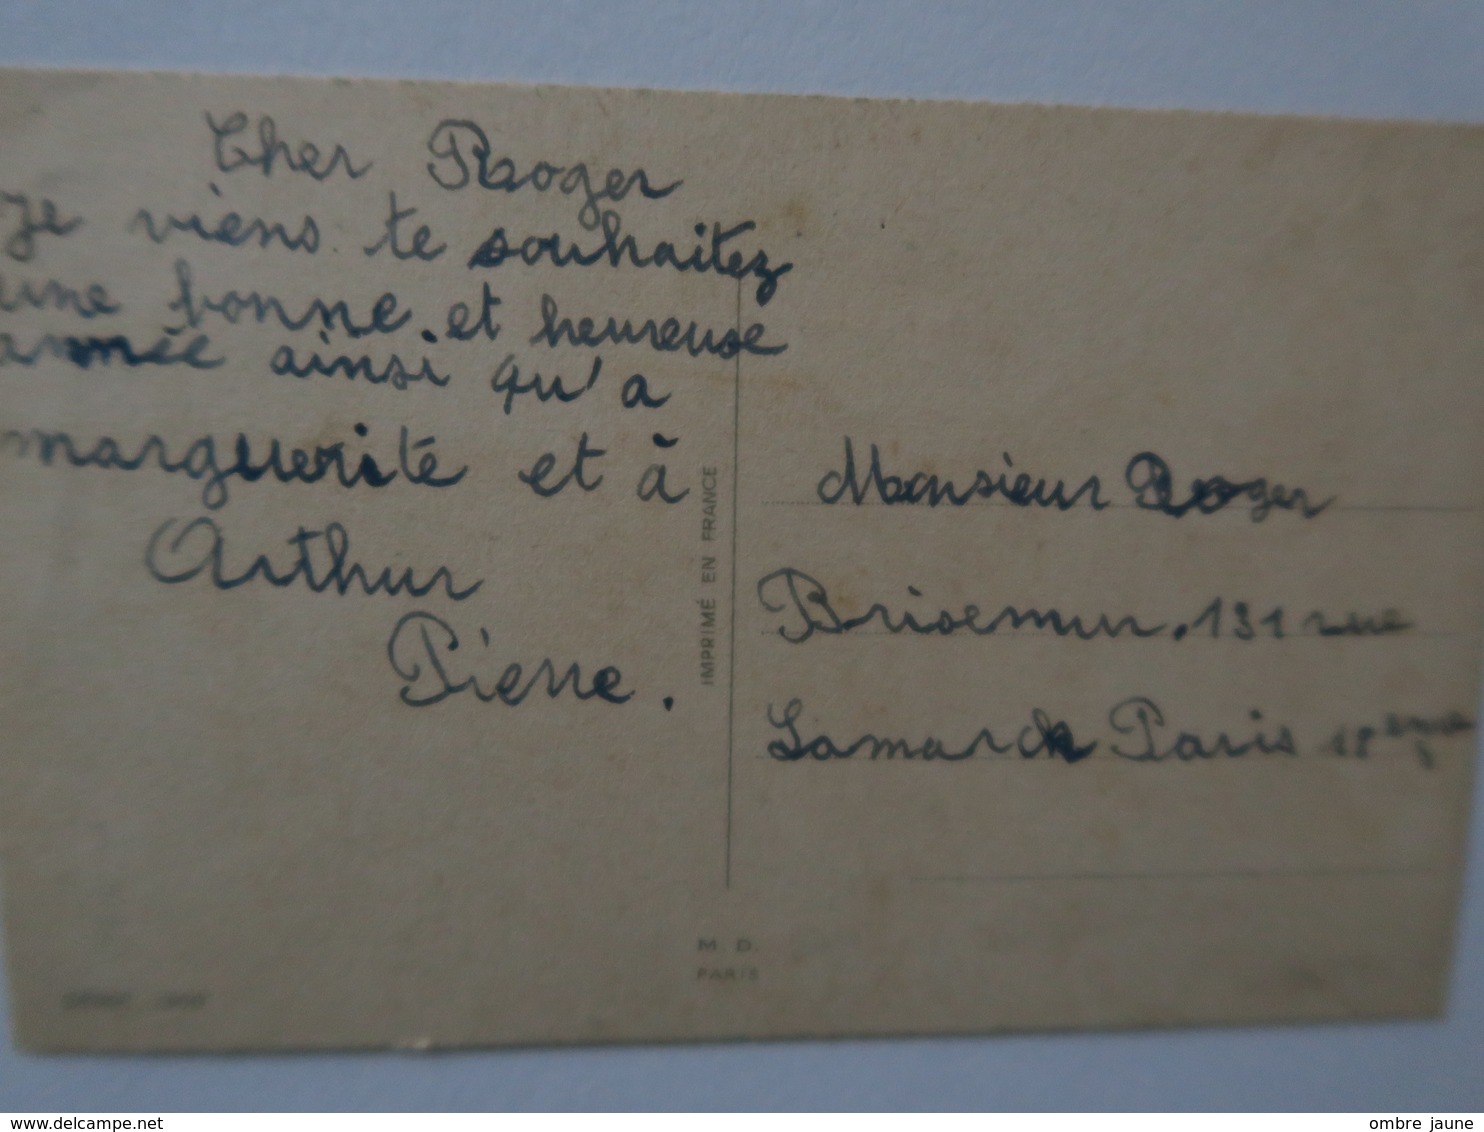 Cher Roger
Je viens te souhaitez
une bonne et heureuse
année ainsi qu'a
marguerite et à
Arthur
Pierre.
IMPRIMÉ EN FRANCE
Monsieur Roger
Brisemur. 131 rue
Lamarck Paris 18eme
M. D.
PARIS
www.delcampe.net
ombre jaune